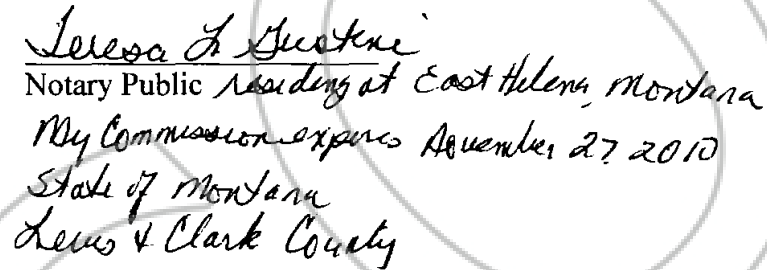 Teresa L
Notary Public residing at East Helena, Montana
My Commission expires November 27, 2010
State of Montana
Lewis & Clark County